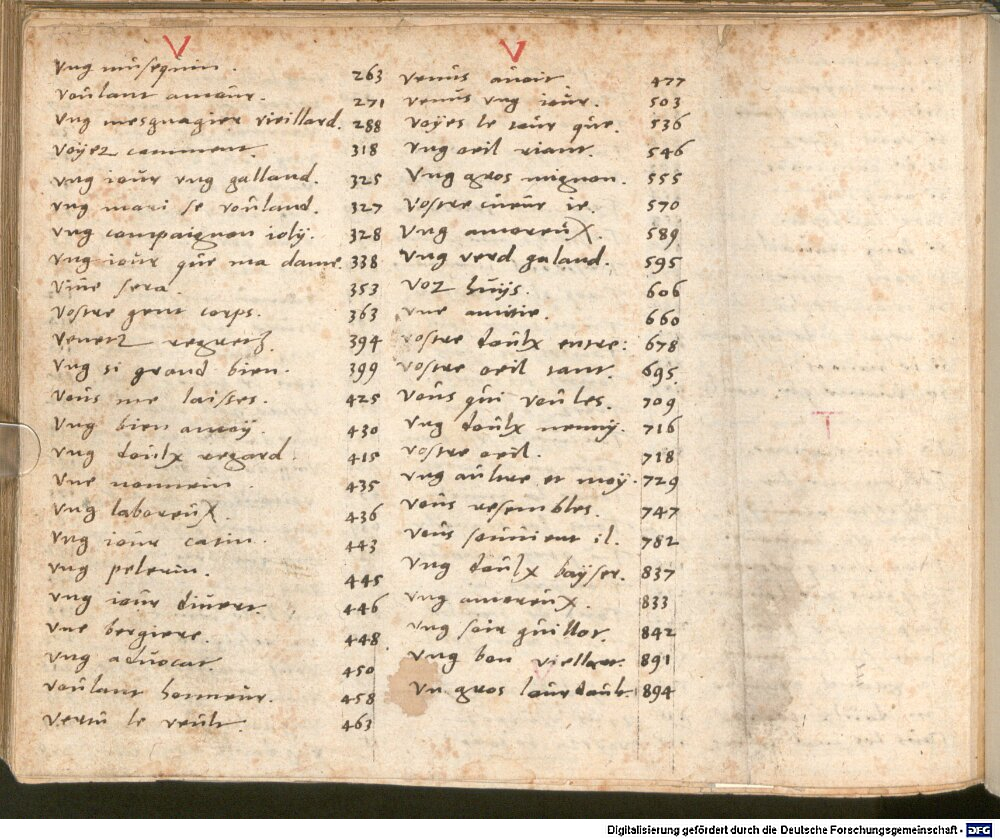 V
Vng musequin. 263
Voulant amour. 271
Vng mesnagier vieillard. 288
Voyez comment. 318
Vng iour vng galland. 325
Vng mari se vouland. 327
Vng compaignon ioly. 328
Vng iour que ma dame. 338
Vine sera. 353
Vostre gent corps. 363
Venetz regretz. 394
Vng si grand bien. 399
Vous me laisses. 425
Vng bien amoy 430
Vng doulx regard. 415
Vne nonnein. 435
Vng laboreux. 436
Vng iour catin. 443
Vng pelerin. 445
Vng iour divert. 446
Vne bergiere. 448
Vng advocat 450
Voulant honneur. 458
Vertu le veult. 463
V
Venus avoit 477
Venus vng iour. 503
Voyes le tour que. 536
Vng oeil riant. 546
Vng gros mignon. 555
Vostre cueur ie. 570
Vng amoreux. 589
Vng verd galand. 595
Voz huys. 606
Vne amitie. 660
Vostre doulx entre: 678
Vostre oeil tant. 695
Vous qui voules. 709
Vng doulx nenny. 716
Vostre oeil. 718
Vng aultre et moy. 729
Vous resembles. 747
Vous souvient il. 782
Vng doulx bayser. 837
Vng amoreux. 833
Vng soir guillot. 842
Vng bon viellart. 891
Vn gros lourdoult. 894
T
Digitalisierung gefördert durch die Deutsche Forschungsgemeinschaft - DFG